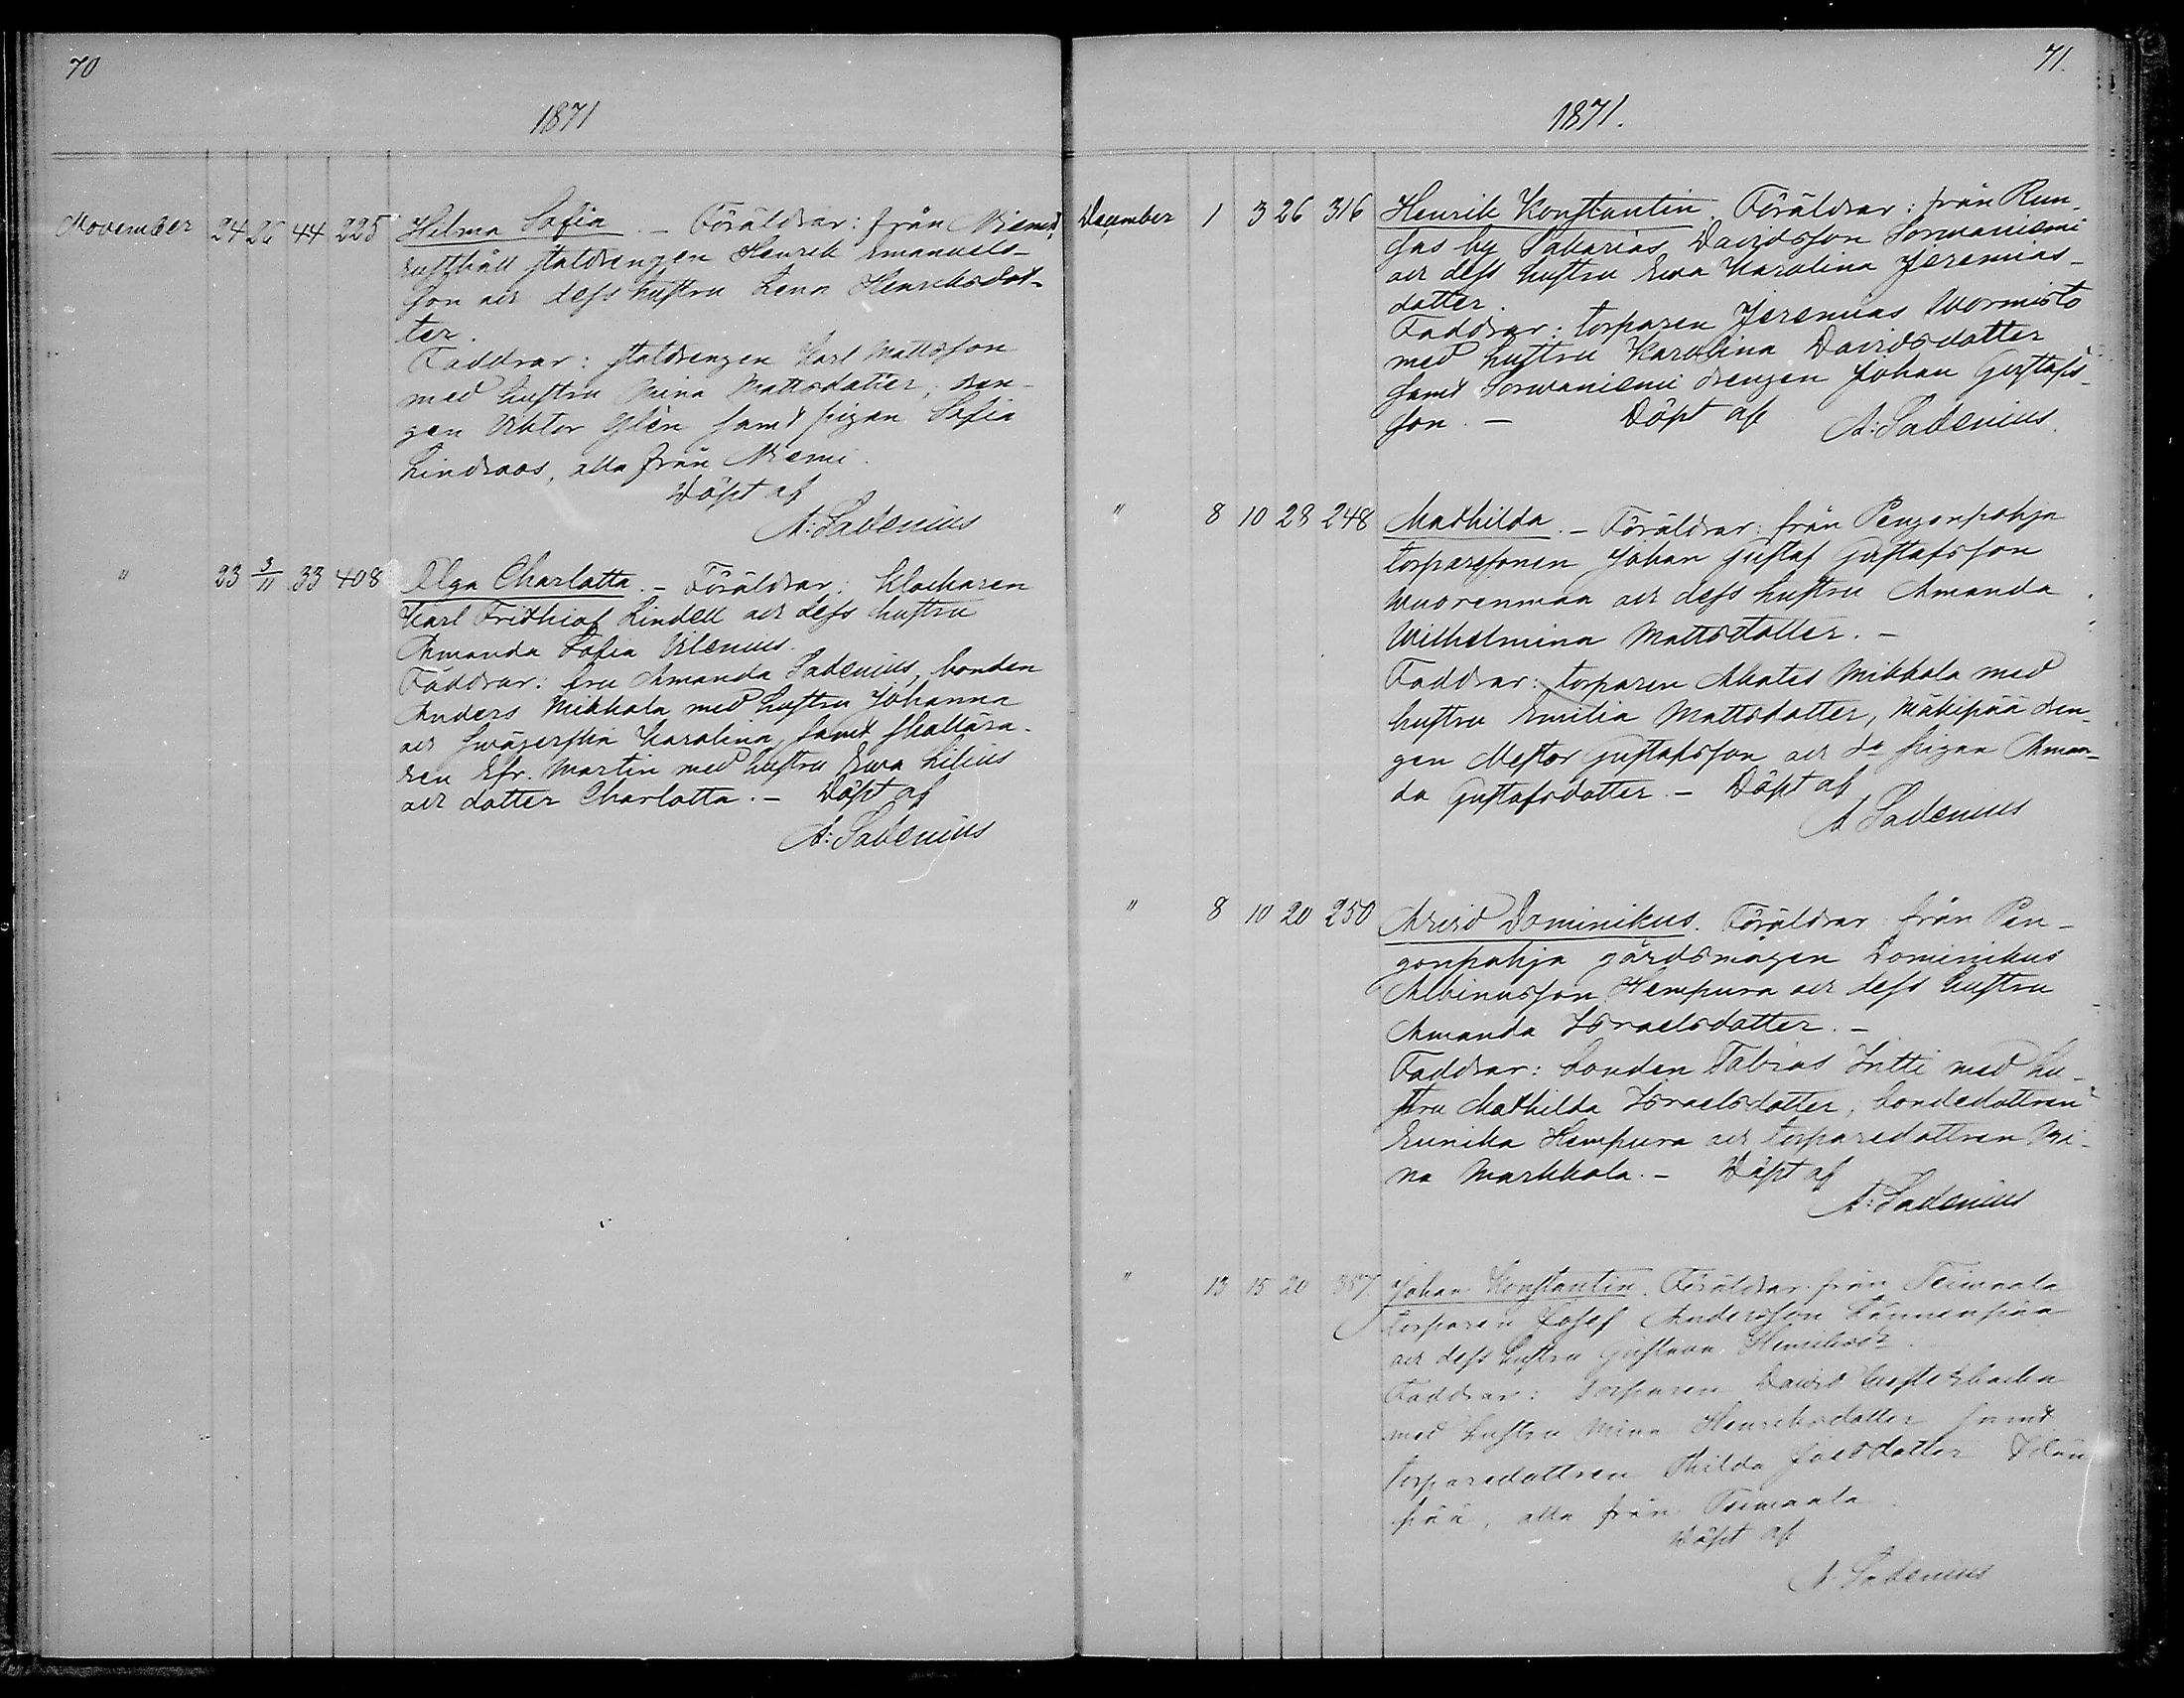 70
1871
November 24 26 44 225 Hilma Sofia. – Föräldrar: från Niemis
rusthåll statdrengen Henrik Emanuels-
son och dess hustru Lena Henriksdot-
ter.
Faddrar: statdrengen Karl Mattsson
med hustru Mina Mattsdotter, dren-
gen Viktor Glén samt pigan Sofia
Lindroos, alla från Niemi.
Döpt af
A: Sadenius
" 23 3/11 33 408 Olga Charlotta. – Föräldrar: klockaren
Karl Fridhiof Lindell och dess hustru
Amanda Sofia Vilenius.
Faddrar: fru Amanda Sadenius, bonden
Anders Mikkola med hustru Johanna
och svägerska Karolina, samt skollära-
ren Efr. Martin med hustru Ewa Lilius
och dotter Charlotta. – Döpt af
A: Sadenius
71.
1871.
December 1 3 26 316 Henrik Konstantin. Föräldrar: från Run-
sas by Sakarias Davidsson Sorwaniemi
och dess hustru Ewa Karolina Jeremias-
dotter.
Faddrar: torparen Jeremias Wormisto
med hustru Karolina Davidsdotter
samt Sorwaniemi drengen Johan Gustafs-
son. – Döpt af
A: Sadenius.
" 8 10 28 248 Mathilda. – Föräldrar: från Pengonpohja
torparesonen Johan Gustaf Gustafsson
Wuorenmaa och dess hustru Amanda
Wilhelmina Mattsdotter. –
Faddrar: torparen Mates Mikkola med
hustru Emilia Mattsdotter, Mäkipää dren-
gen Nestor Gustafsson och do pigan Aman-
da Gustafsdotter. – Döpt af
A Sadenius
" 8 10 20 250 Arvid Dominikus. Föräldrar från Pen-
gonpohja gårdsmågen Dominikus
Albinusson Hempura och dess hustru
Amanda Israelsdotter. –
Faddrar: bonden Tobias Intti med hu-
stru Mathilda Israelsdotter, bondedottren
Eunika Hempura och torparedottren Mi-
na Markkola. – Döpt af
A: Sadenius
" 13 15 20 357 Johan Konstantin. Föräldrar från Teimaala
torparen Josef Andersson Lännenpää
och dess hustru Gustava Henriksdr.
Faddrar: torparen David
med hustru Mina Henriksdotter samt
torparedottren Thilda Josefsdotter
pää, alla från Teimaala.
Döpt af
A. Sadenius